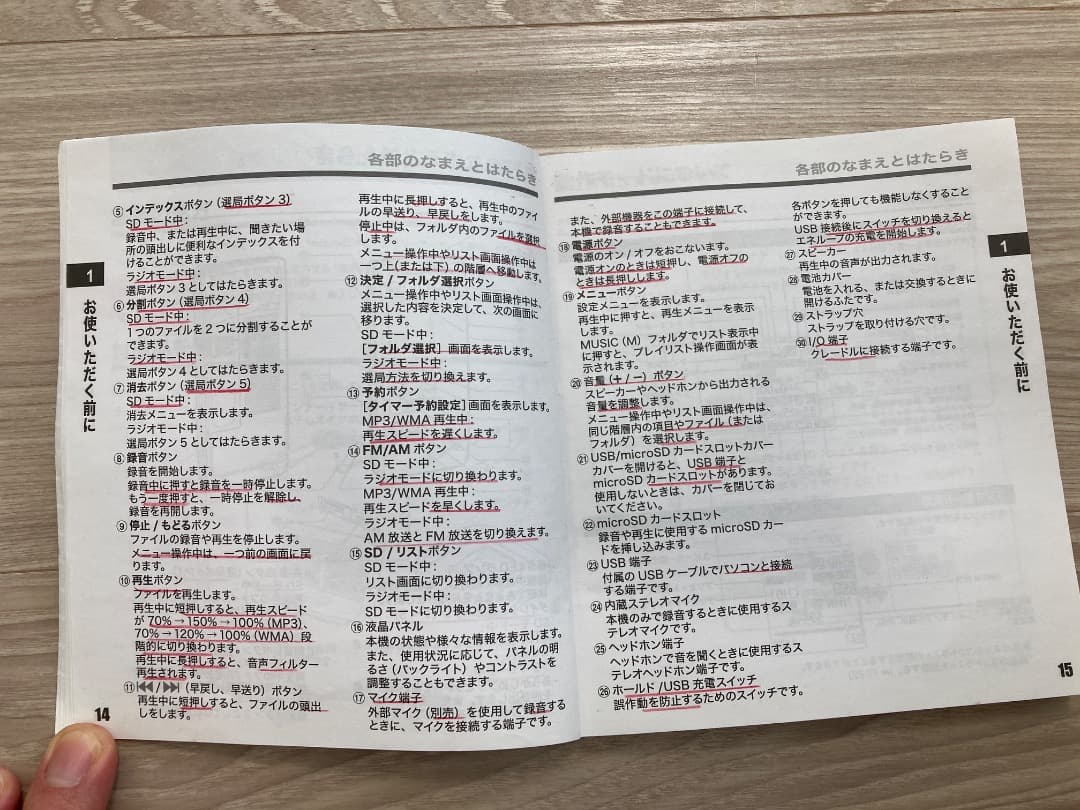 各部のなまえとはたらき
⑤ インデックスボタン（選局ボタン 3）
SD モード中：
録音中、または再生中に、聞きたい場
所の頭出しに便利なインデックスを付
けることができます。
ラジオモード中：
選局ボタン 3 としてはたらきます。
⑥ 分割ボタン（選局ボタン 4）
SD モード中：
1 つのファイルを 2 つに分割することが
できます。
ラジオモード中：
選局ボタン 4 としてはたらきます。
⑦ 消去ボタン（選局ボタン 5）
SD モード中：
消去メニューを表示します。
ラジオモード中：
選局ボタン 5 としてはたらきます。
⑧ 録音ボタン
録音を開始します。
録音中に押すと録音を一時停止します。
もう一度押すと、一時停止を解除し、
録音を再開します。
⑨ 停止 / もどるボタン
ファイルの録音や再生を停止します。
メニュー操作中は、一つ前の画面に戻
ります。
⑩ 再生ボタン
ファイルを再生します。
再生中に短押しすると、再生スピード
が 70% → 150% → 100% (MP3)、
70% → 120% → 100% (WMA) 段
階的に切り換わります。
再生中に長押しすると、音声フィルター
再生されます。
⑪ ⏮ / ⏭（早戻し、早送り）ボタン
再生中に短押しすると、ファイルの頭出
しをします。
再生中に長押しすると、再生中のファイ
ルの早送り、早戻しをします。
停止中は、フォルダ内のファイルを選択
します。
メニュー操作中やリスト画面操作中は
一つ上（または下）の階層へ移動します。
⑫ 決定 / フォルダ選択ボタン
メニュー操作中やリスト画面操作中は、
選択した内容を決定して、次の画面に
移ります。
SD モード中：
［フォルダ選択］画面を表示します。
ラジオモード中：
選局方法を切り換えます。
⑬ 予約ボタン
［タイマー予約設定］画面を表示します。
MP3/WMA 再生中：
再生スピードを遅くします。
⑭ FM/AM ボタン
SD モード中：
ラジオモードに切り換わります。
MP3/WMA 再生中：
再生スピードを早くします。
ラジオモード中：
AM 放送と FM 放送を切り換えます。
⑮ SD / リストボタン
SD モード中：
リスト画面に切り換わります。
ラジオモード中：
SD モードに切り換わります。
⑯ 液晶パネル
本機の状態や様々な情報を表示します。
また、使用状況に応じて、パネルの明
るさ（バックライト）やコントラストを
調整することもできます。
⑰ マイク端子
外部マイク（別売）を使用して録音する
ときに、マイクを接続する端子です。
1
お使いいただく前に
14
各部のなまえとはたらき
また、外部機器をこの端子に接続して、
本機で録音することもできます。
⑱ 電源ボタン
電源のオン / オフをおこないます。
電源オンのときは短押し、電源オフの
ときは長押しします。
⑲ メニューボタン
設定メニューを表示します。
再生中に押すと、再生メニューを表示
します。
MUSIC（M）フォルダでリスト表示中
に押すと、プレイリスト操作画面が表
示されます。
⑳ 音量（+ / −）ボタン
スピーカーやヘッドホンから出力される
音量を調整します。
メニュー操作中やリスト画面操作中は、
同じ階層内の項目やファイル（または
フォルダ）を選択します。
㉑ USB/microSD カードスロットカバー
カバーを開けると、USB 端子と
microSD カードスロットがあります。
使用しないときは、カバーを閉じてお
いてください。
㉒ microSD カードスロット
録音や再生に使用する microSD カー
ドを押し込みます。
㉓ USB 端子
付属の USB ケーブルでパソコンと接続
する端子です。
㉔ 内蔵ステレオマイク
本機のみで録音するときに使用するス
テレオマイクです。
㉕ ヘッドホン端子
ヘッドホンで音を聞くときに使用するス
テレオヘッドホン端子です。
㉖ ホールド /USB 充電スイッチ
誤作動を防止するためのスイッチです。
各ボタンを押しても機能しなくすること
ができます。
USB 接続後にスイッチを切り換えると
エネループの充電を開始します。
㉗ スピーカー
再生中の音声が出力されます。
㉘ 電池カバー
電池を入れる、または交換するときに
開けるふたです。
㉙ ストラップ穴
ストラップを取り付ける穴です。
㉚ I/O 端子
クレードルに接続する端子です。
1
お使いいただく前に
15